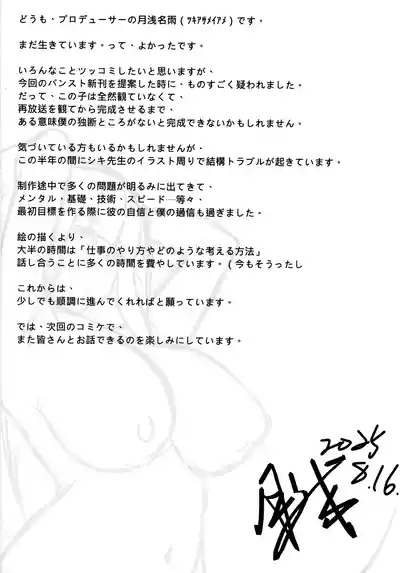 どうも、プロデューサーの月浅名雨(ﾂｷｱｻﾒｲｱﾒ)です。
まだ生きています。って、よかったです。
いろんなことツッコミしたいと思いますが、
今回のパンスト新刊を提案した時に、ものすごく疑われました。
だって、この子は全然観ていなくて、
再放送を観てから完成させるまで、
ある意味僕の独断ところがないと完成できないかもしれません。
気づいている方もいるかもしれませんが、
この半年の間にシキ先生のイラスト周りで結構トラブルが起きています。
制作途中で多くの問題が明るみに出てきて、
メンタル、基礎、技術、スピード─等々、
最初目標を作る際に彼の自信と僕の過信も過ぎました。
絵の描くより、
大半の時間は「仕事のやり方やどのような考える方法」
話し合うことに多くの時間を費やしています。(今もそうったし
これからは、
少しでも順調に進んでくれればと願っています。
では、次回のコミケで、
また皆さんとお話できるのを楽しみにしています。
2025
8.16.
月浅